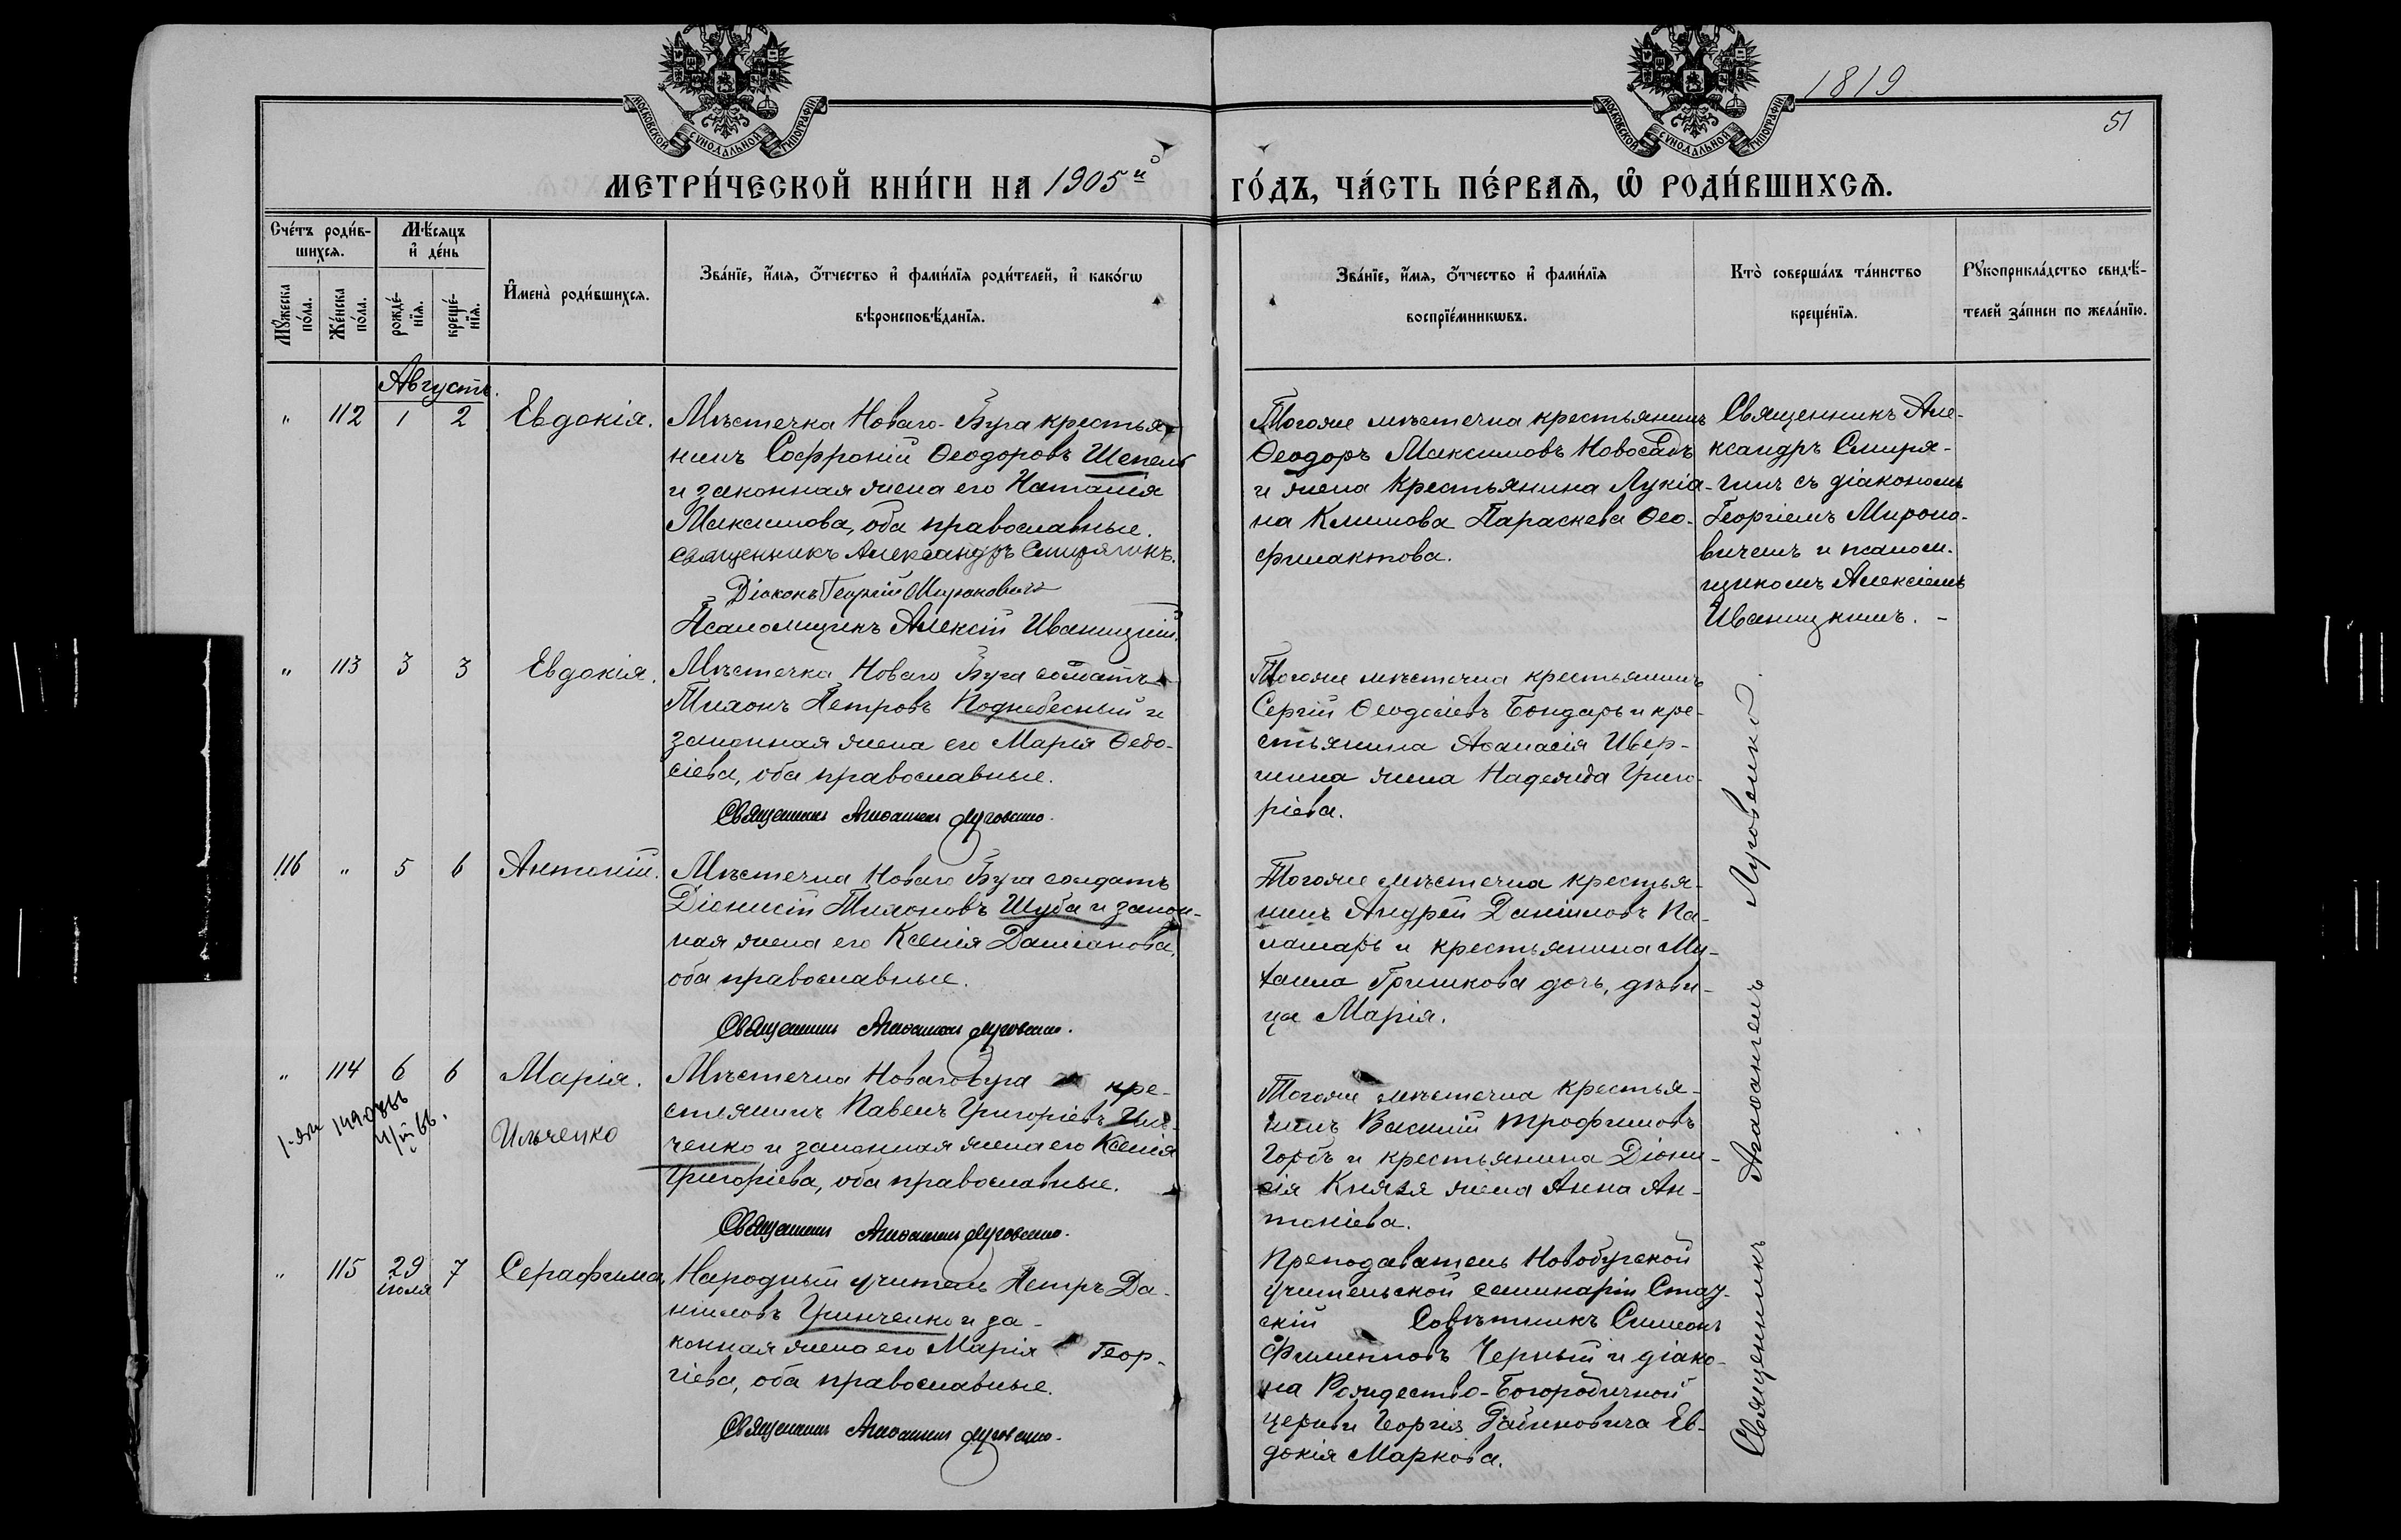 МОСКОВСКОЙ СѴНОДАЛЬНОЙ ТИПОГРАФІИ.
МОСКОВСКОЙ СѴНОДАЛЬНОЙ ТИПОГРАФІИ.
1819
51
МЕТРИ́ЧЕСКОЙ КНИ́ГИ НА 1905й ГО́ДЪ, ЧА́СТЬ ПЕ́РВАѦ, Ѡ҆ РОДИ́ВШИХСѦ.
Сче́тъ роди́в-
шихсѧ.
Мꙋ́жеска по́ла.
Же́нска по́ла.
Мѣ́сѧцъ
и҆ де́нь
рожде́-
нїѧ.
креще́-
нїѧ.
И҆мена̀ роди́вшихсѧ.
Зва́нїе, и҆́мѧ, ѻ҆́тчество и҆ фами́лїѧ роди́телей, и҆ како́гѡ
вѣроисповѣ́данїѧ.
Зва́нїе, и҆́мѧ, ѻ҆́тчество и҆ фами́лїѧ
воспрїе́мникѡвъ.
Кто̀ соверша́лъ та́инство
креще́нїѧ.
Рꙋкоприкла́дство свидѣ́-
телей за́писи по жела́нїю.
Августъ.
" 112 1 2 Евдокія.
Мѣстечка Новаго-Буга крестья-
нинъ Софроній Ѳеодоровъ Шепель
и законная жена его Наталія
Максимова, оба православные.
Священникъ Александръ Смирягинъ.
Діаконъ Георгій Мироновичъ
Псаломщикъ Алексій Иваницкій.
Тогоже мѣстечка крестьянинъ
Ѳеодоръ Максимовъ Новосадъ
и жена крестьянина Лукіа-
на Климова Параскева Ѳео-
филактова.
Священникъ Але-
ксандръ Смиря-
гинъ съ діакономъ
Георгіемъ Мироно-
вичемъ и псалом-
щикомъ Алексіемъ
Иваницкимъ. -
" 113 3 3 Евдокія.
Мѣстечка Новаго Буга солдатъ
Тихонъ Петровъ Поднебесный и
законная жена его Марія Ѳедо-
сіева, оба православные.
Священникъ Агаѳангелъ Луговенко.
Тогоже мѣстечка крестьянинъ
Сергій Ѳеодосіевъ Бондарь и кре-
стьянина Аѳанасія
жена Надежда Григо-
ріева.
116 " 5 6 Антоній.
Мѣстечка Новаго Буга солдатъ
Діонисій Тихоновъ Шуба и закон-
ная жена его Ксенія Даміанова,
оба православные.
Священникъ Агаѳангелъ Луговенко.
Тогоже мѣстечка крестья-
нинъ Андрей Даніиловъ Па-
ламарь и крестьянина Ми-
хаила Гришкова дочь, дѣви-
ца Марія.
" 114 6 6 Марія.
Ильченко
Мѣстечка Новаго Буга кре-
стьянинъ Павелъ Григоріевъ Иль-
ченко и законная жена его Ксенія
Григоріева, оба православные.
Священникъ Агаѳангелъ Луговенко.
Тогоже мѣстечка крестья-
нинъ Василій Трофимовъ
Горбъ и крестьянина Діони-
сія Князя жена Анна Ан-
тоніева.
" 115 29 іюля 7 Серафима.
Народный учитель Петръ Да-
ніиловъ Гринченко и за-
конная жена его Марія Геор-
гіева, оба православные.
Священникъ Агаѳангелъ Луговенко.
Преподаватель Новобугской
учительской семинаріи Стат-
скій Совѣтникъ Симеонъ
Филипповъ Черный и діако-
на Рождество-Богородичной
церкви Георгія Евдокія Маркова.
Священникъ Агаѳангелъ Луговенко.